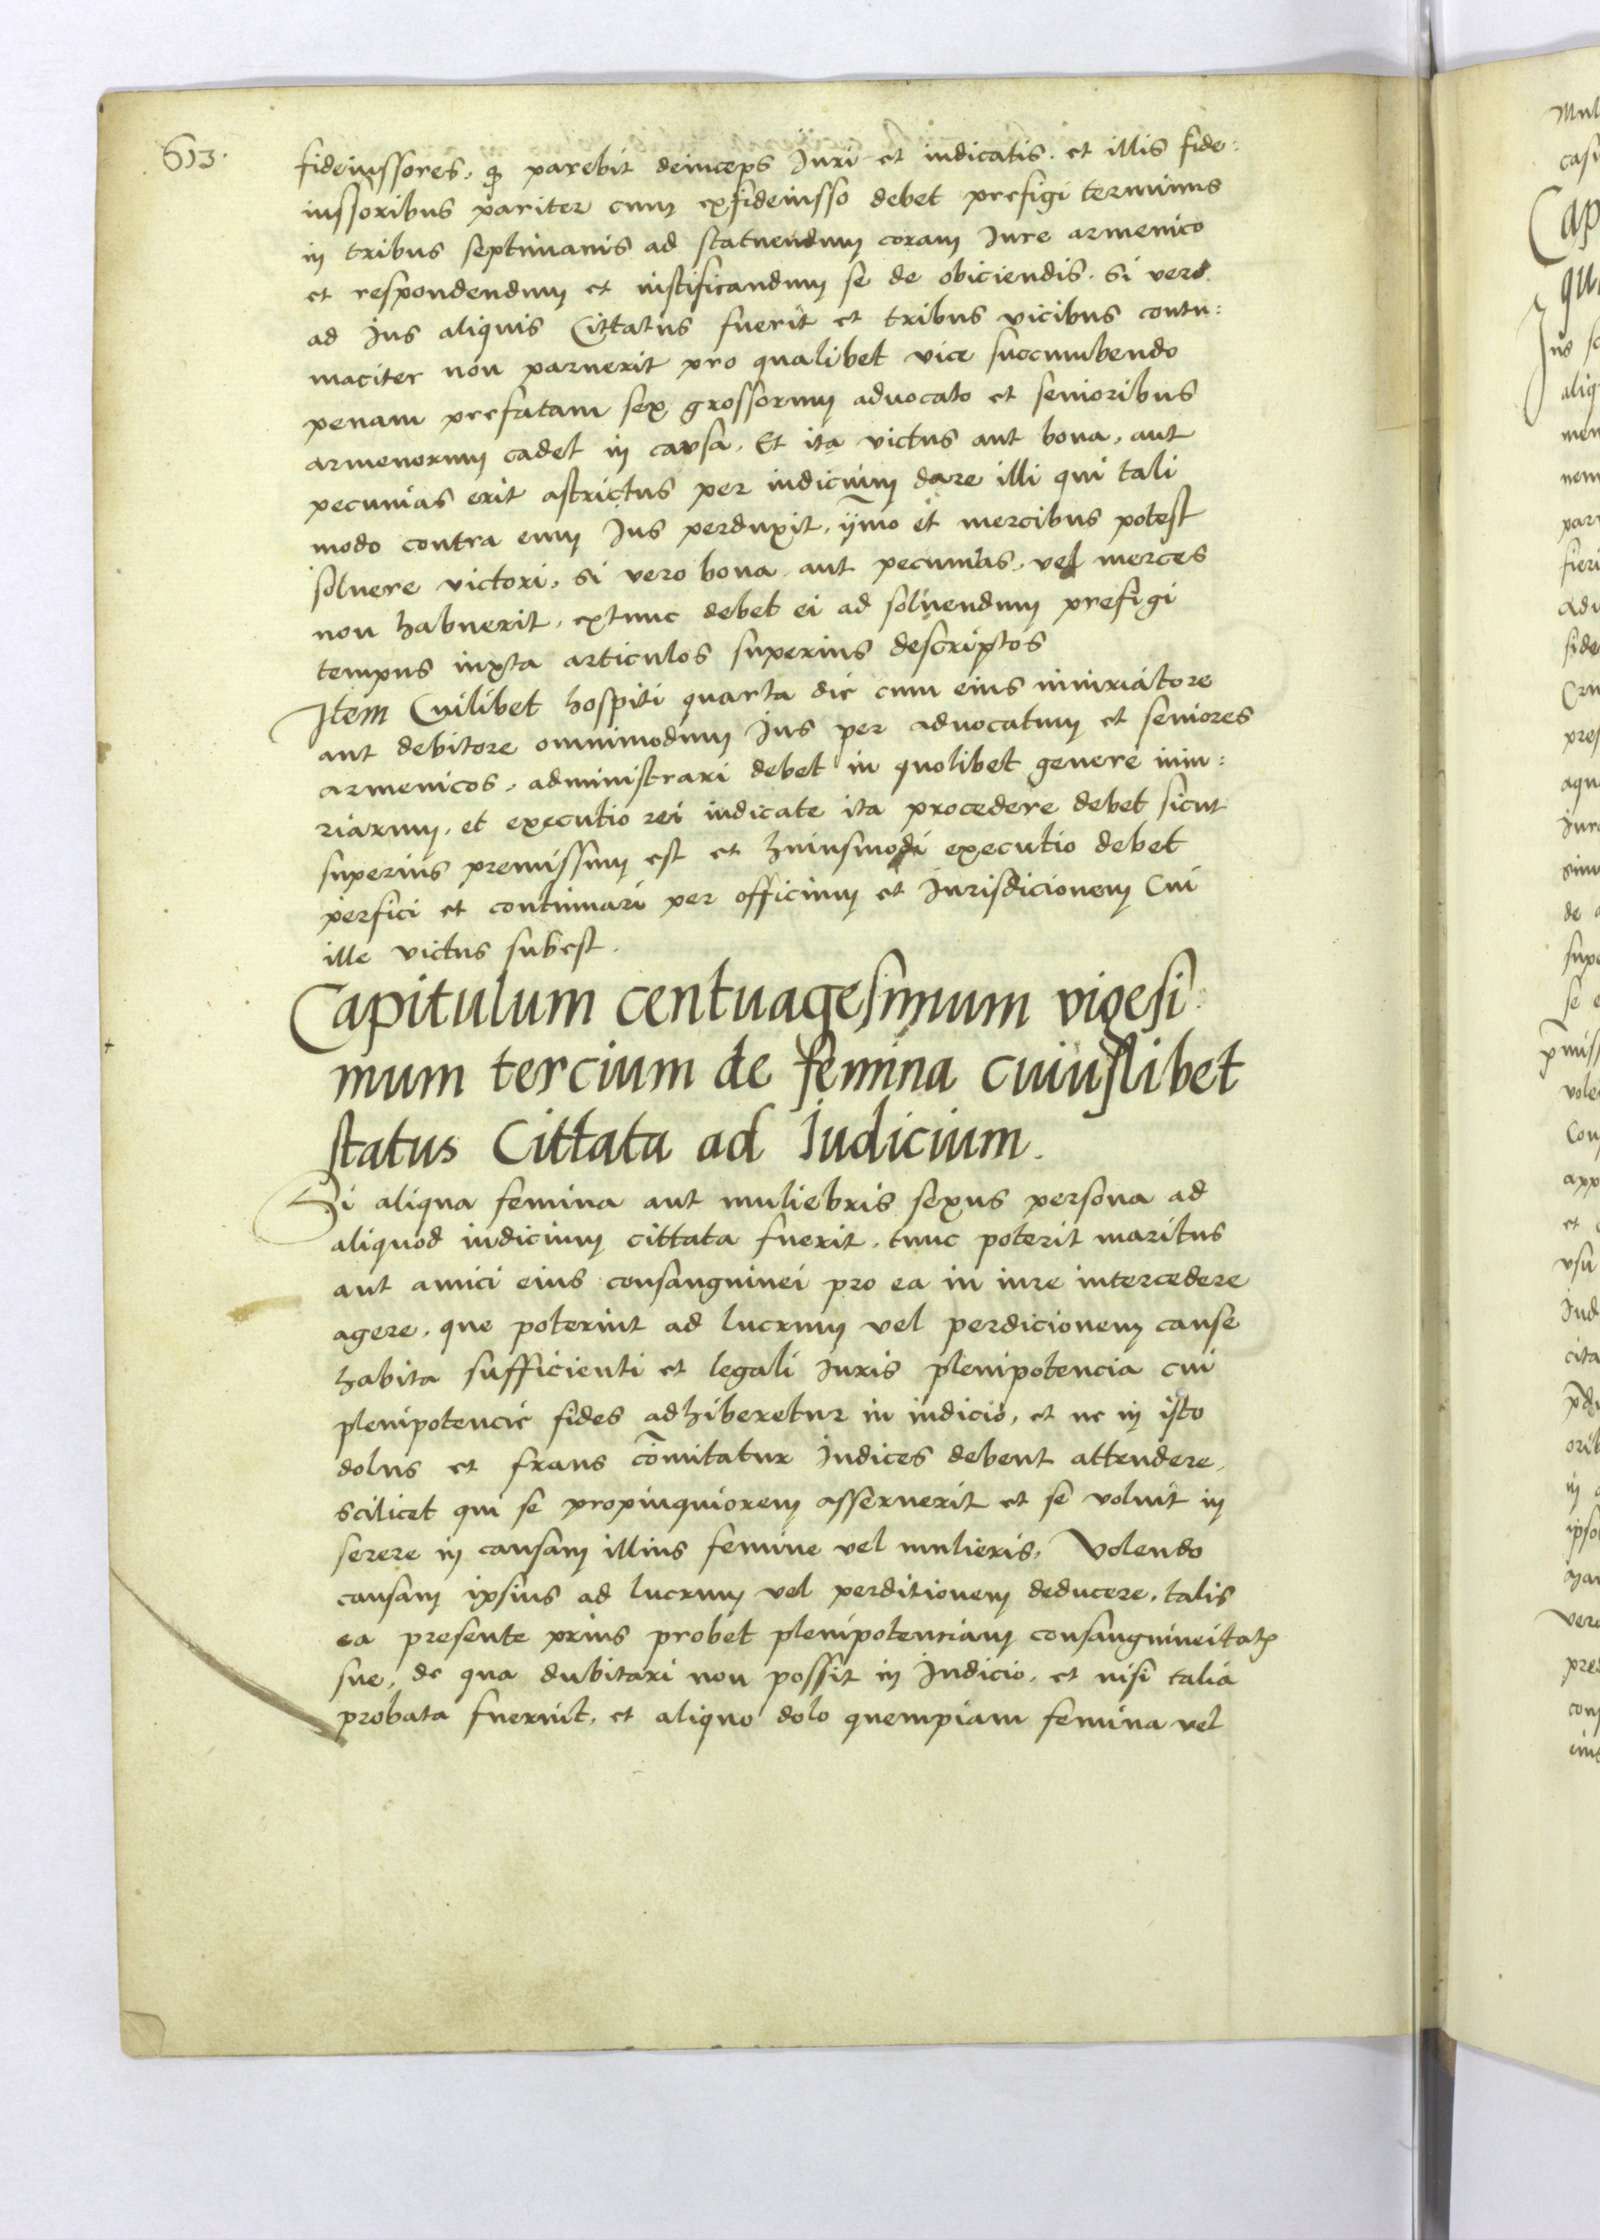 613.
fideiussores, quod parebit deinceps Juri et iudicatis. et illis fide:
iussoribus pariter cum exfideiusso debet prefigi terminus
in tribus septimanis ad statuendum coram Jure armenico
et respondendum et iustificandum se de obiciendis. si vero
ad Jus aliquis Cittatus fuerit et tribus vicibus contu:
maciter non paruerit pro qualibet vice succumbendo
penam prefatam sex grossorum aduocato et senioribus
armenorum cadet in causa. Et ita victus aut bona, aut
pecunias erit astrictus per iudicium dare illi qui tali
modo contra eum Jus perduxit, ymo et mercibus potest
soluere victori, si vero bona aut pecunias, vel merces
non habuerit, extunc debet ei ad soluendum prefigi
tempus iuxta articulos superius descriptos
Item Cuilibet hospiti quarta die cum eius iniuriatore
aut debitore omnimodum Jus per aduocatum et seniores
armenicos, administrari debet in quolibet genere iniu:
riarum, et executio rei iudicate ita procedere debet sicut
superius premissum est et huiusmodi executio debet
perfici et continuari per officium et Jurisdicionem Cui
ille victus subest.
Capitulum centuagesimum vigesi:
mum tercium de femina cuiuslibet
status Cittata ad Iudicium.
Si aliqua femina aut muliebris sexus persona ad
aliquod iudicium cittata fuerit, tunc poterit maritus
aut amici eius consanguinei pro ea in iure intercedere
agere, que poterint ad lucrum vel perdicionem cause
habita sufficienti et legali iuris plenipotencia cui
plenipotencie fides adhiberetur in iudicio, et ne in isto
dolus et fraus co͞mitatur Iudices debent attendere,
scilicet qui se propinquiorem asseruerit et se voluit in
serere in causam illius femine vel mulieris, Volendo
causam ipsius ad lucrum vel perditionem deducere, talis
ea presente prius probet plenipotenciam consanguineitatꝭ
sue, de qua dubitari non possit in Iudicio, et nisi talia
probata fuerint, et aliquo dolo quempiam femina vel